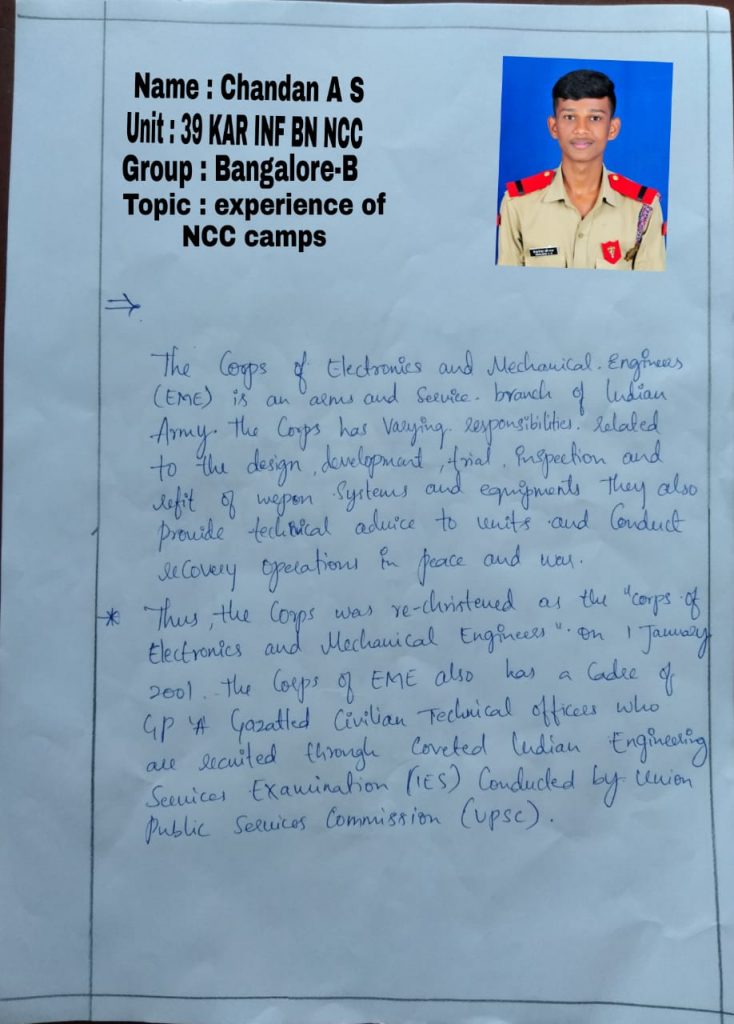 Name : Chandan A S
Unit : 39 KAR INF BN NCC
Group : Bangalore-B
Topic : experience of
NCC camps
⇒
The Corps of Electronics and Mechanical. Engineers
(EME) is an arms and Service. branch of Indian
Army. The Corps has Varying. responsibilities. related
to the design, development, trial, Inspection and
refit of wepon Systems and equipments They also
provide technical advice to units and Conduct
recovery operations in peace and war.
* Thus, the Corps was re-christened as the "corps of
Electronics and Mechanical Engineers". on 1 January
2001. The Corps of EME also has a Cadre of
GP 'A' Gazatted Civilian Technical officers who
are recuited through Coveted Indian Engineering
Services Examination (IES) Conducted by Union
Public Services Commission (UPSC).